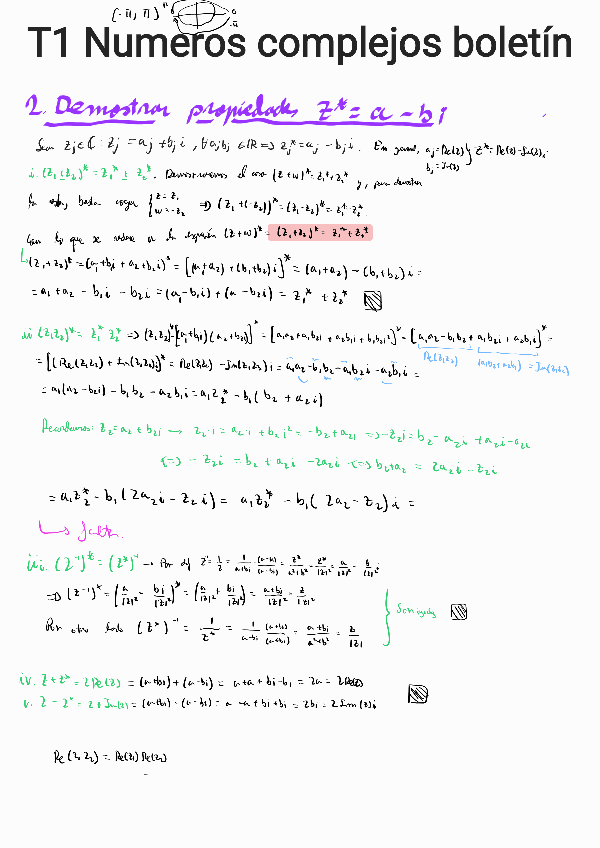 [-π, π)
T1 Numeros complejos boletín
2. Demostrar propiedades z* = a - bi
Sean zj ∈ ℂ : zj = aj + bj i , ∀ aj bj ∈ ℝ ⇒ zj* = aj - bj i. En general, aj = Re(z) bj = Im(z) } z* = Re(z) - Im(z)i
i. (z1 ± z2)* = z1* ± z2*. Demostraremos el caso (z + w)* = z* + z2* y, para demostrar
basta coger { z = z1 w = -z2 ⇒ (z1 + (-z2))* = (z1 - z2)* = z1* - z2*
Con lo que se reduce a la expresión (z + w)* = (z1 + z2)* = z1* + z2*
(z1 + z2)* = (a1 + bi + a2 + b2i)* = [(a1 + a2) + (b1 + b2)i]* = (a1 + a2) - (b1 + b2)i =
= a1 + a2 - b1i - b2i = (a1 - b1i) + (a - b2i) = z1* + z2*
ii (z1z2)* = z1* z2* ⇒ (z1z2)* = [(a1 + b1i)(a2 + b2i)]* = [a1a2 + a1b2i + a2b1i + b1b2i²]* = [a1a2 - b1b2 + a1b2i + a2b1i]* =
Re(z1z2) (a1b2 + a2b1) = Im(z1z2)
= [(Re(z1z2) + Im(z1z2)i]* = Re(z1z2) - Im(z1z2)i = a1a2 - b1b2 - a1b2i - a2b1i =
= a1(a2 - b2i) - b1b2 - a2b1i = a1z2* - b1(b2 + a2i)
Recordemos: z2 = a2 + b2i → z2·i = a2·i + b2i² = -b2 + a2i ⇒ -z2i = b2 - a2i + a2i - a2i
⇔ - z2i = b2 + a2i - 2a2i ⇔ b2 + a2 = 2a2i - z2i
= a1z2* - b1(2a2i - z2i) = a1z2* - b1(2a2 - z2)i =
↳ falta.
iii. (z⁻¹)* = (z*)⁻¹ → Por def z⁻¹ = 1/z = 1/(a+bi) · (a-bi)/(a-bi) = z*/(a²+b²) = z*/|z|² = a/|z|² - b/|z|² i
⇒ (z⁻¹)* = (a/|z|² - bi/|z|²)* = (a/|z|² + bi/|z|²) = (a+bi)/|z|² = z/|z|²
Son iguales
Por otro lado (z*)⁻¹ = 1/z* = 1/(a-bi) (a+bi)/(a+bi) = (a+bi)/(a²+b²) = z/|z|
iv. z + z* = 2Re(z) = (a+bi) + (a-bi) = a+a + bi-bi = 2a = 2Re(z)
v. z - z* = 2iIm(z) = (a+bi) - (a-bi) = a - a + bi + bi = 2bi = 2Im(z)i
Re(z1 z2) = Re(z1) Re(z2)